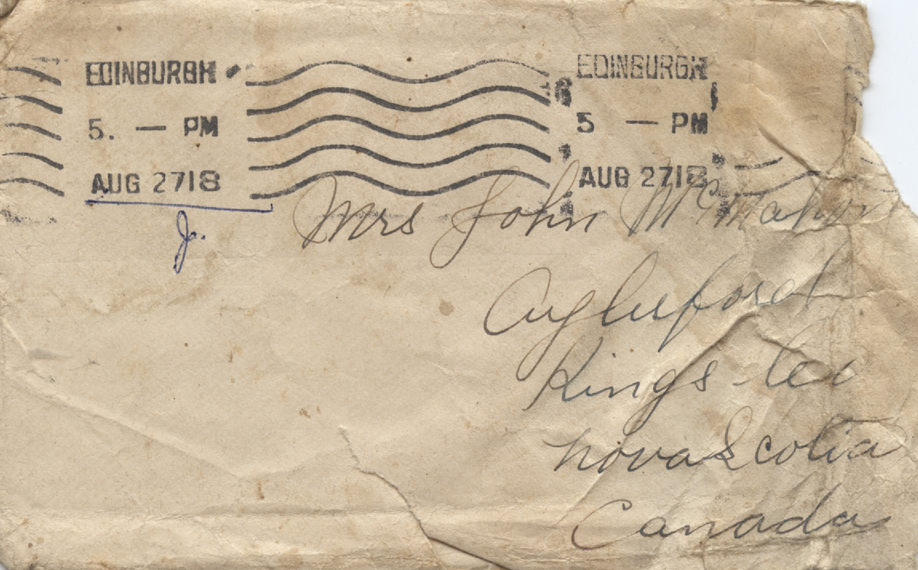 EDINBURGH EDINBURGH
5. — PM 5 — PM
AUG 27 18 AUG 27 18
J.
Mrs John McMahon
Aylesford
Kings Co
Nova Scotia
Canada